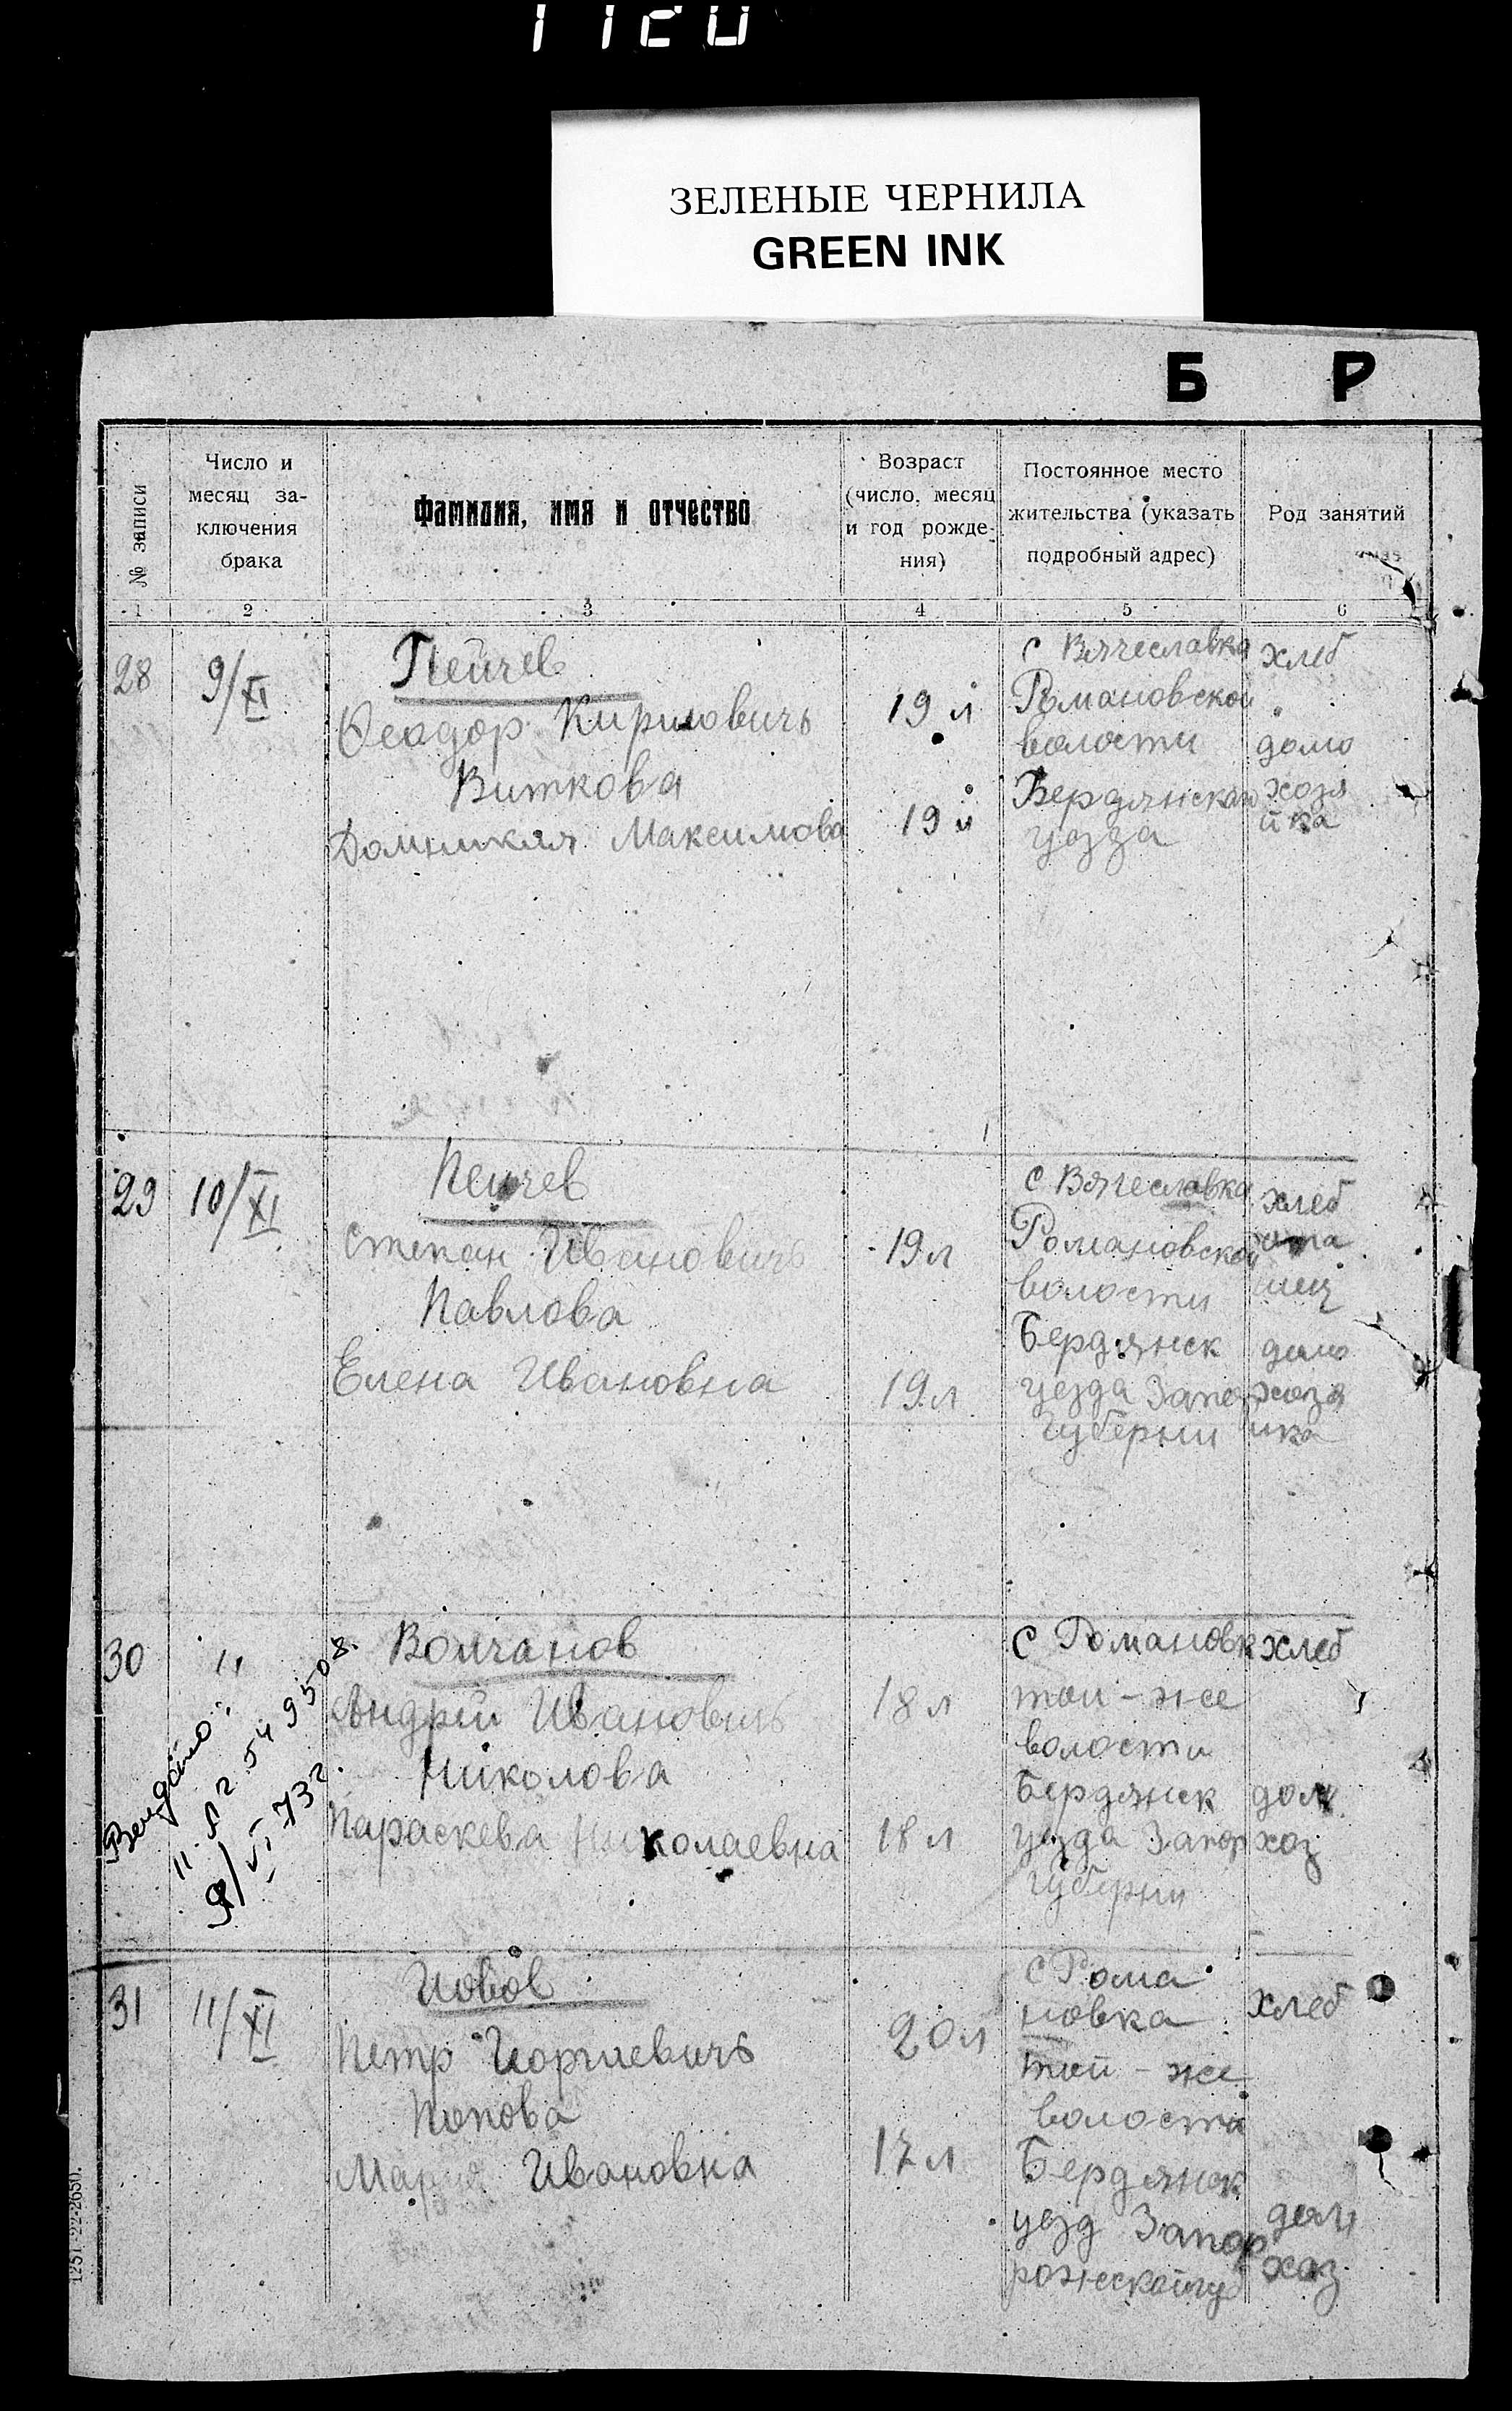 ЗЕЛЕНЫЕ ЧЕРНИЛА
GREEN INK
Б Р
№ записи
Число и месяц за-ключения брака
Фамилия, имя и отчество
Возраст (число, месяц и год рожде-ния)
Постоянное место жительства (указать подробный адрес)
Род занятий
1 2 3 4 5 6
28 9/XI
Пейчев
Феодор Кириловичъ
Виткова
Домникия Максимова
19 л
19 л
с Вячеславка
Романовской
волости
Бердянская
уезда
хлеб
домо
хозя
йка
29 10/XI
Пейчев
Степан Ивановичъ
Павлова
Елена Ивановна
19 л
19 л
с Вячеславка
Романовской
волости
Бердянск
уезда Запор
Губерни
хлеб
домо
хозя
ика
30 "
Волчанов
Андрій Ивановичъ
Николова
Параскева Николаевна
18 л
18 л
с Романовк
той-же
волости
Бердянск
уезда Запор
Губерни
хлеб
дом
хоз
31 11/XI
Иовов
Петр Георгиевичъ
Попова
Мария Ивановна
20 л
17 л
с Рома
новка
той-же
волости
Бердянск
уезд Запор
рожскойгуб
хлеб
дом
хоз
1251-22-2650.